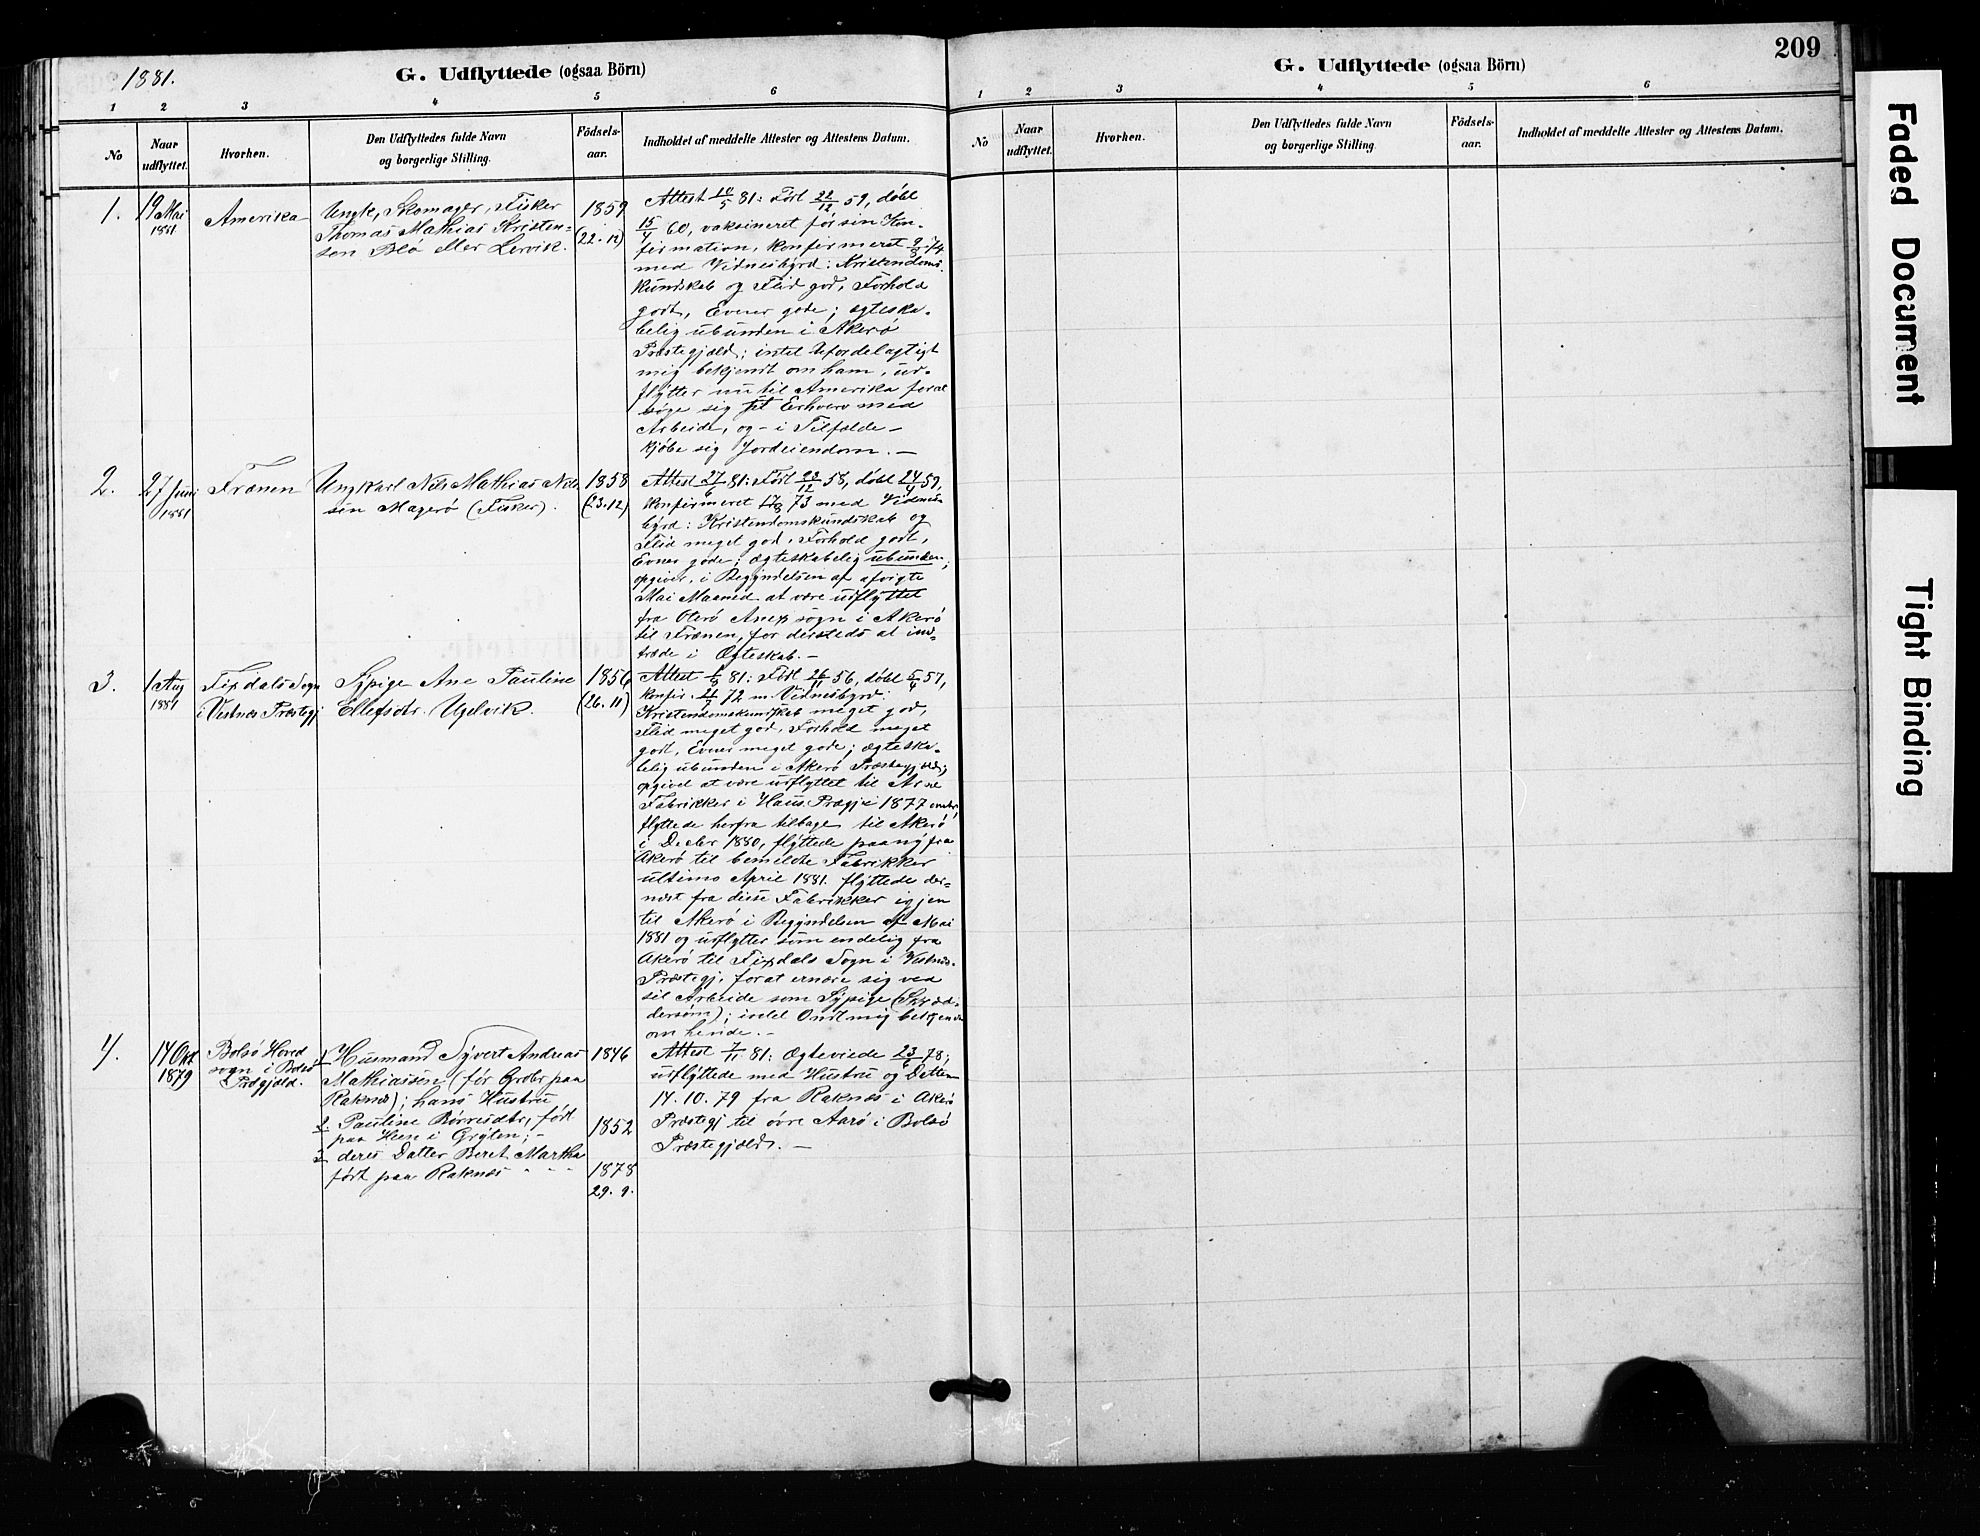 1881.
G. Udflyttede (ogsaa Börn)
1 2 3 4 5 6
No
Naar udflyttet.
Hvorhen.
Den Udflyttedes fulde Navn
og borgerlige Stilling.
Födsels-
aar.
Indholdet af meddelte Attester og Attestens Datum.
1.
19 Mai
1881
Amerika
Ungk, Skomager, Fisker
Thomas Mathias Kristen-
sen Blø eller Lervik.
1859
(22.12)
Attest 10/5 81: Født 22/12 59, døbt
15/4 60, vaksineret før sin Kon-
firmation, konfirmeret 74
med Vidnesbyrd: Kristendoms-
kundskab og Flid god, Forhold
godt, Evner gode; ægteska-
belig ubunden i Akerø
Præstegjæld; intet Ufordelagtigt
mig bekjendt om ham, ud-
flytter nu til Amerika forat
søge sig Erhverv med
Arbeide, og - i Tilfælde -
kjøbe sig Jordeiendom. -
2.
27 Juni
1881
Frænen
Ungkarl Nils Mathias Nils-
sen Magerø (Fisker).
1858
(23.12)
Attest 27/6 81: Født 23/12 58, døbt 24/4 59,
konfirmeret 73 med Vidnes-
byrd: Kristendomskundskab og
Flid meget god, Forhold godt,
Evner gode; ægteskabelig ubunden;
opgiver, i Begyndelsen af afvigte
Mai Maaned at være udflyttet
fra Oterø Anexsogn i Akerø
til Frænen, for dersteds at ind-
træde i Ægteskab. -
3.
1 Aug
1881
Fixdals Sogn
i Vestnes Præstegj
Sypige Ane Pauline
Ellefsdtr. Ugelvik.
1856
(26.11)
Attest 1/8 81: Født 26/11 56, døbt 5/4 57,
konfir. 72 m. Vidnesbyrd:
Kristendomskundskab meget god,
Flid meget god, Forhold meget
godt, Evner meget gode; ægteska-
belig ubunden i Akerø Præstegjæld;
opgivet at være udflyttet til Arne
Fabrikker i Haus Prægj. i 1877
flyttede herfra tilbage til Akerø
i Decbr 1880, flyttede paany fra
Akerø til bemeldte Fabrikker
ultimo April 1881. flyttede der-
næst fra disse Fabrikker igjen
til Akerø i Begyndelsen af Mai
1881 og udflytter som endelig fra
Akerø til Fixdals Sogn i Vestnes
Præstegj. forat ernære sig ved
sit Arbeide som Sypige (Skræd-
dersøm); intet Ondt mig bekjendt
om hende. -
4.
14 Okt
1879
Bolsø Hoved
sogn i Bolsø
Prdgjæld.
1 Husmand Syvert Andreas
Mathiassen (før Grdbr paa
Raknes); hans Hustru
2 Pauline Børresdtr, født
paa Heen i Grytten; -
3 deres Datter Beret Martha
født paa Raknes
1846
1852
1878
29. 9.
Attest 7/11 81: Ægteviede 23/6 78;
udflyttede med Hustru og Datter
14. 10. 79 fra Raknes i Akerø
Præstegj til øvre Aarø i Bolsø
Præstegjæld. -
G. Udflyttede (ogsaa Börn)
209
1 2 3 4 5 6
No
Naar
udflyttet.
Hvorhen.
Den Udflyttedes fulde Navn
og borgerlige Stilling.
Födsels-
aar.
Indholdet af meddelte Attester og Attestens Datum.
Faded Document
Tight Binding